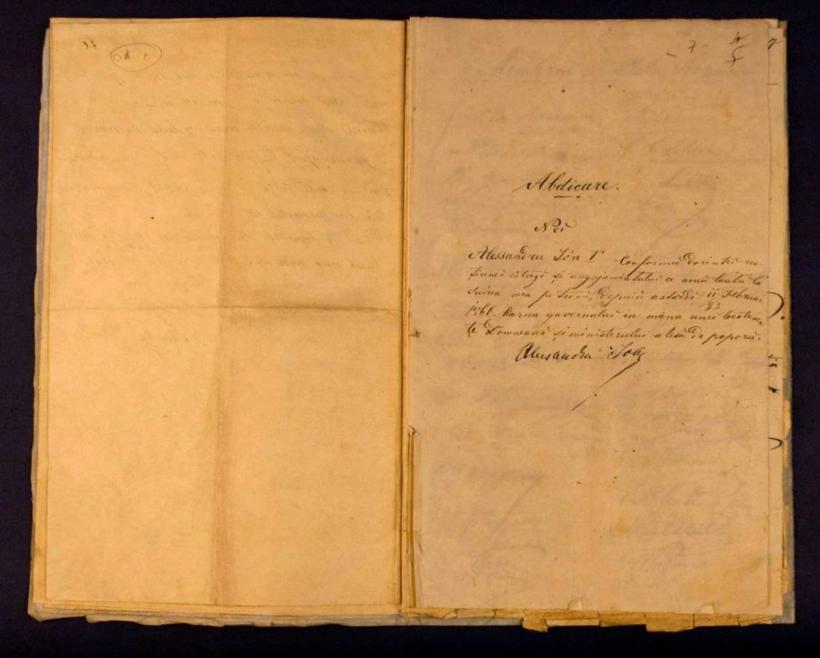 Abdicare.
Noi
Alessandru Ión I Conformŭ dorintei na-
ției întregi și angajamentului ce amŭ luatŭ la
suirea mea pe tronŭ, depunŭ astăzĭ 11/23 Februar
1866 kârma guvernului în mâna unei locotenen-
țe Domnescĭ și ministerului alesŭ de poporŭ.
Alessandru Ioan